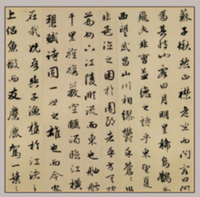 蘇子愀然正襟危坐而問客曰何
為其然也客曰月明星稀烏鵲南
飛此非曹孟德之詩乎
西望武昌山川相繆鬱乎蒼
非孟德之困於周郎者乎方其
荊州下江陵順流而東也舳艫
千里旌旗蔽空釃酒臨江橫
槊賦詩固一世之雄也而今安
在哉況吾與子漁樵於江渚之
上侶魚蝦而友麋鹿駕一葉